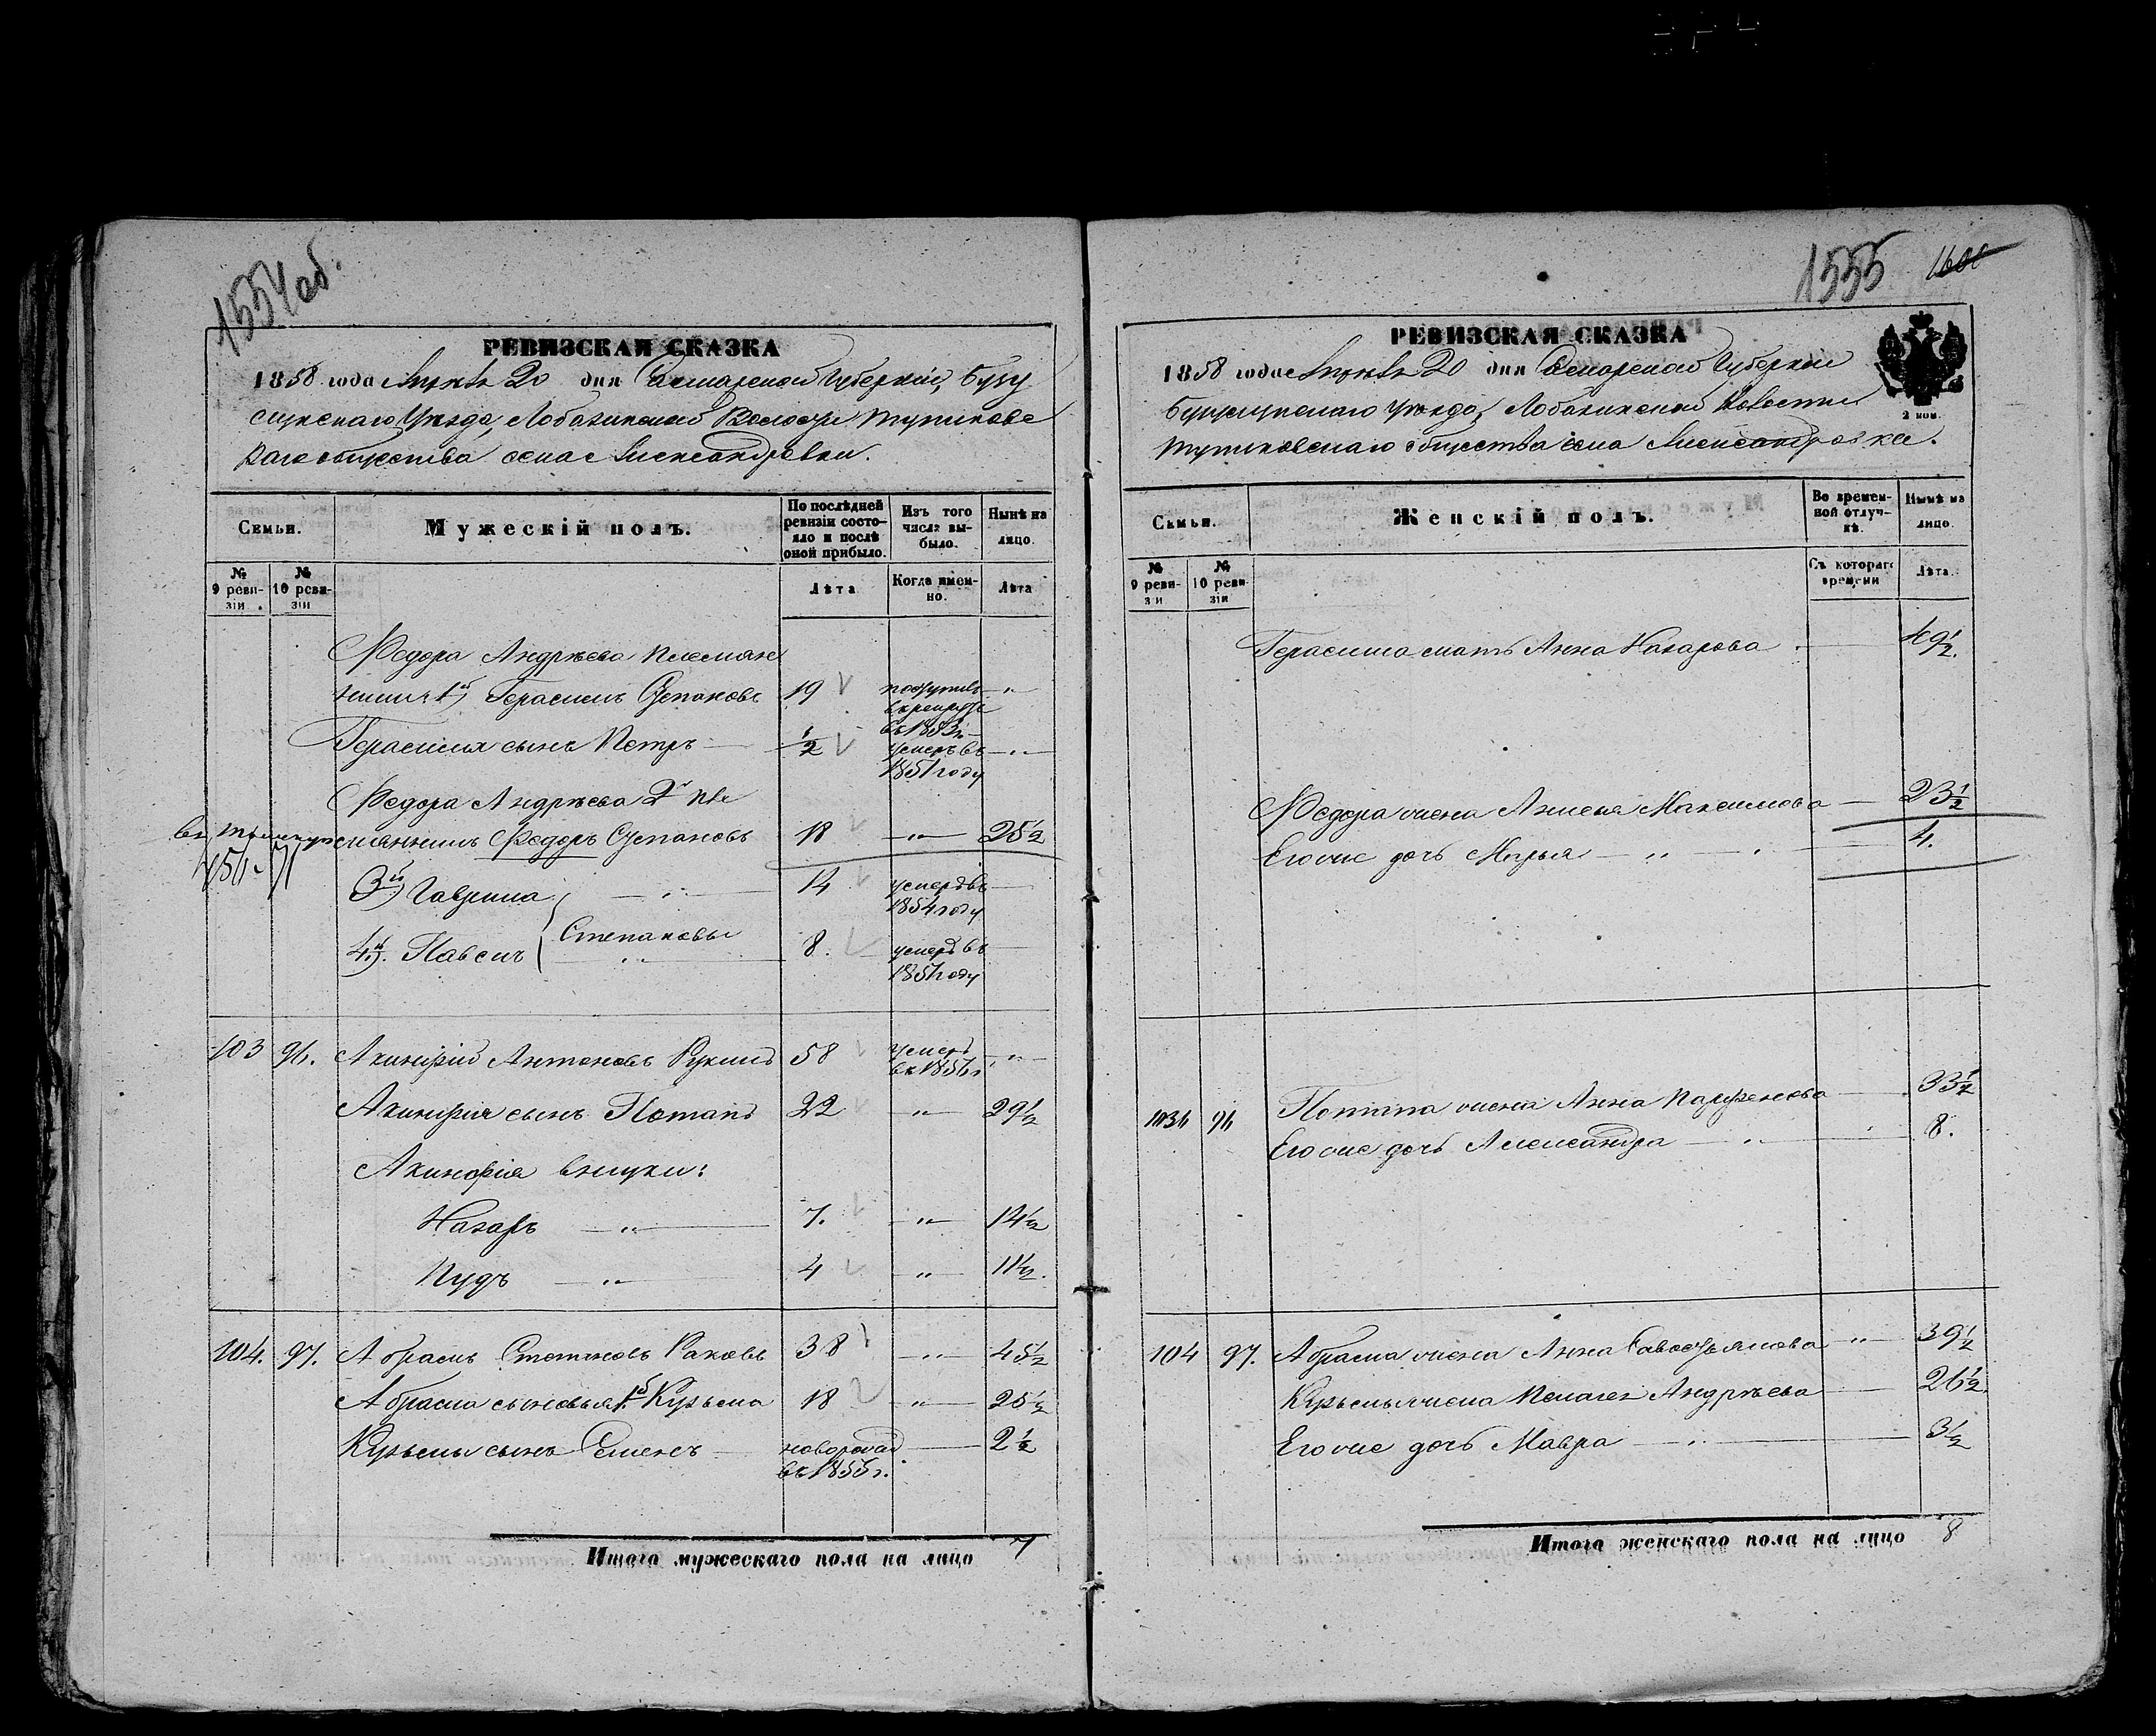 1554 об.
РЕВИЗСКАЯ СКАЗКА
1858 года Апрѣля 20 дня Самарской Губерніи, Бузу
лукскаго Уѣзда, Лобазинской Волости Тупиковс
каго общества села Александровки.
Семьи.
Мужескій полъ.
По послѣдней ревизіи состояло и послѣ оной прибыло.
Изъ того числа выбыло.
Нынѣ на лицо.
№ 9 ревизіи
№ 10 ревизіи
Лѣта
Когда именно.
Лѣта
Федора Андрѣева племян
ники 1й Герасимъ Степановъ 19 поступилъ в рекруты въ 1853 г. — „
Герасима сынъ Петръ — 1/2 умеръ въ 1851 году — „
Федора Андрѣева 2й пле
мянникъ Федоръ Степановъ 18 — „ — 25 1/2
3й) Гаврила — „ — 14 умеръ въ 1854 году —
Степановы
4й). Павелъ — „ — 8. умеръ въ 1851 году —
103 96. Акинфій Антоновъ Рукинъ 58 умеръ въ 1856 г. — „
Акинфія сынъ Потапъ 22 „ 29 1/2
Акинфія внуки:
Назаръ — „ — 7. — „ — 14 1/2
Пудъ — „ 4 — „ — 11 1/2.
104. 97. Абрамъ Степановъ Раковъ 38 — „ — 45 1/2
Абрама сыновья 1й Кузьма 18 „ — 25 1/2
Кузьмы сынъ Семенъ — новорожд въ 1855 г. — 2 1/2
Итого мужескаго пола на лицо 7
1555
РЕВИЗСКАЯ СКАЗКА
1858 года Апрѣля 20 дня Самарской Губерніи
Бузулукскаго уѣзда, Лобазинской Волости
Тупиковскаго общества села Александровки.
2 коп.
Семьи.
Женскій полъ.
Во временной отлучкѣ.
Нынѣ на лицо.
№ 9 ревизіи
№ 10 ревизіи
Съ котораго времени
Лѣта.
Герасима мать Анна Назарова — 49 1/2.
Федора жена Анисья Максимова — 23 1/2
Его же дочь Марья — „ — 4.
103 96 Потапа жена Анна Парфенова — 33 1/2
Его же дочь Александра — „ — 8.
104 97. Абрама жена Анна Савостьянова „ — 39 1/2
Кузьмы жена Пелагея Андрѣева — 26 1/2
Его же дочь Мавра — „ — 3 1/2
Итого женскаго пола на лицо 8